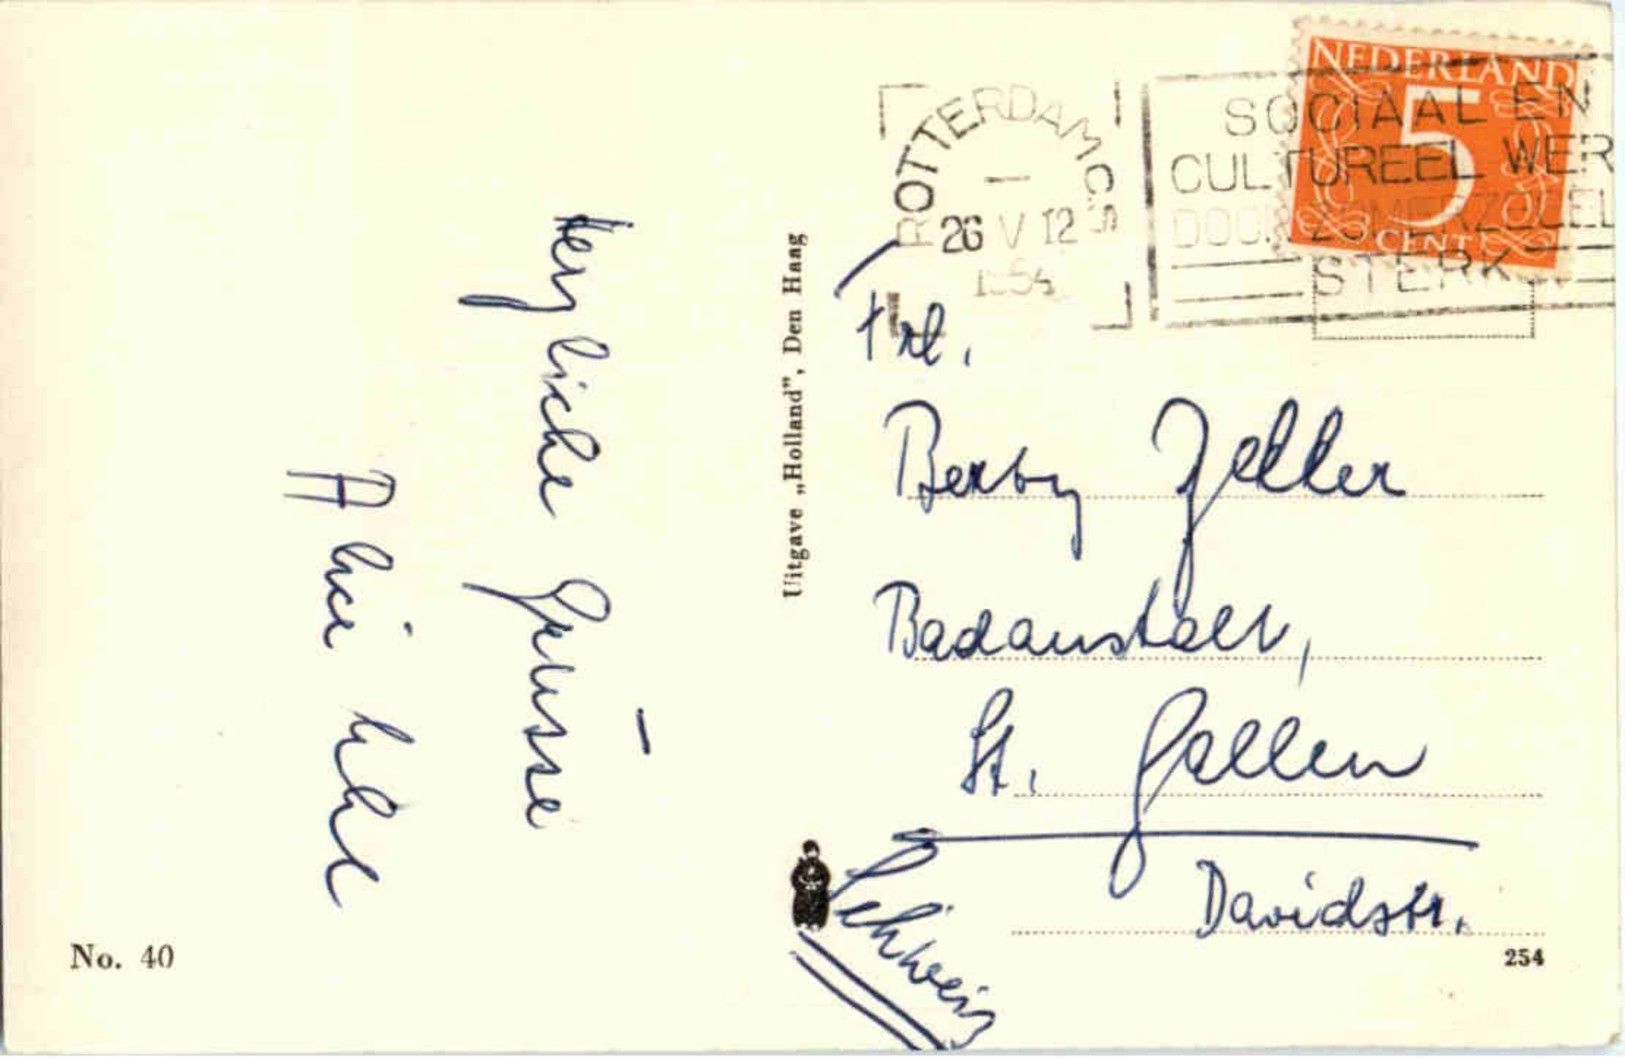 Herzliche Grüsse
ROTTERDAM C.S.
26 V 12
1954
SOCIAAL EN
CULTUREEL WER
DOOR ZOMERZEGEL
STERK
NEDERLAND
5
CENT
Uitgave „Holland", Den Haag
Frl.
Berty Zeller
Badanstalt,
St. Gallen
Davidstr.
Schweiz
No. 40
254